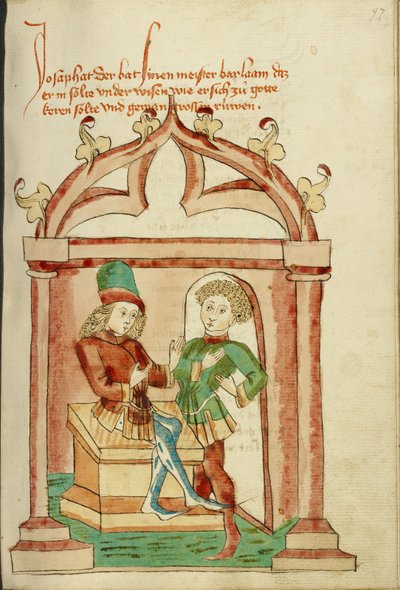 97
Josaphat der bat sinen meister barlaam daz
er in sölte under wisen wie er sich zů gotte
keren sölte und gewan grossen rüwen .